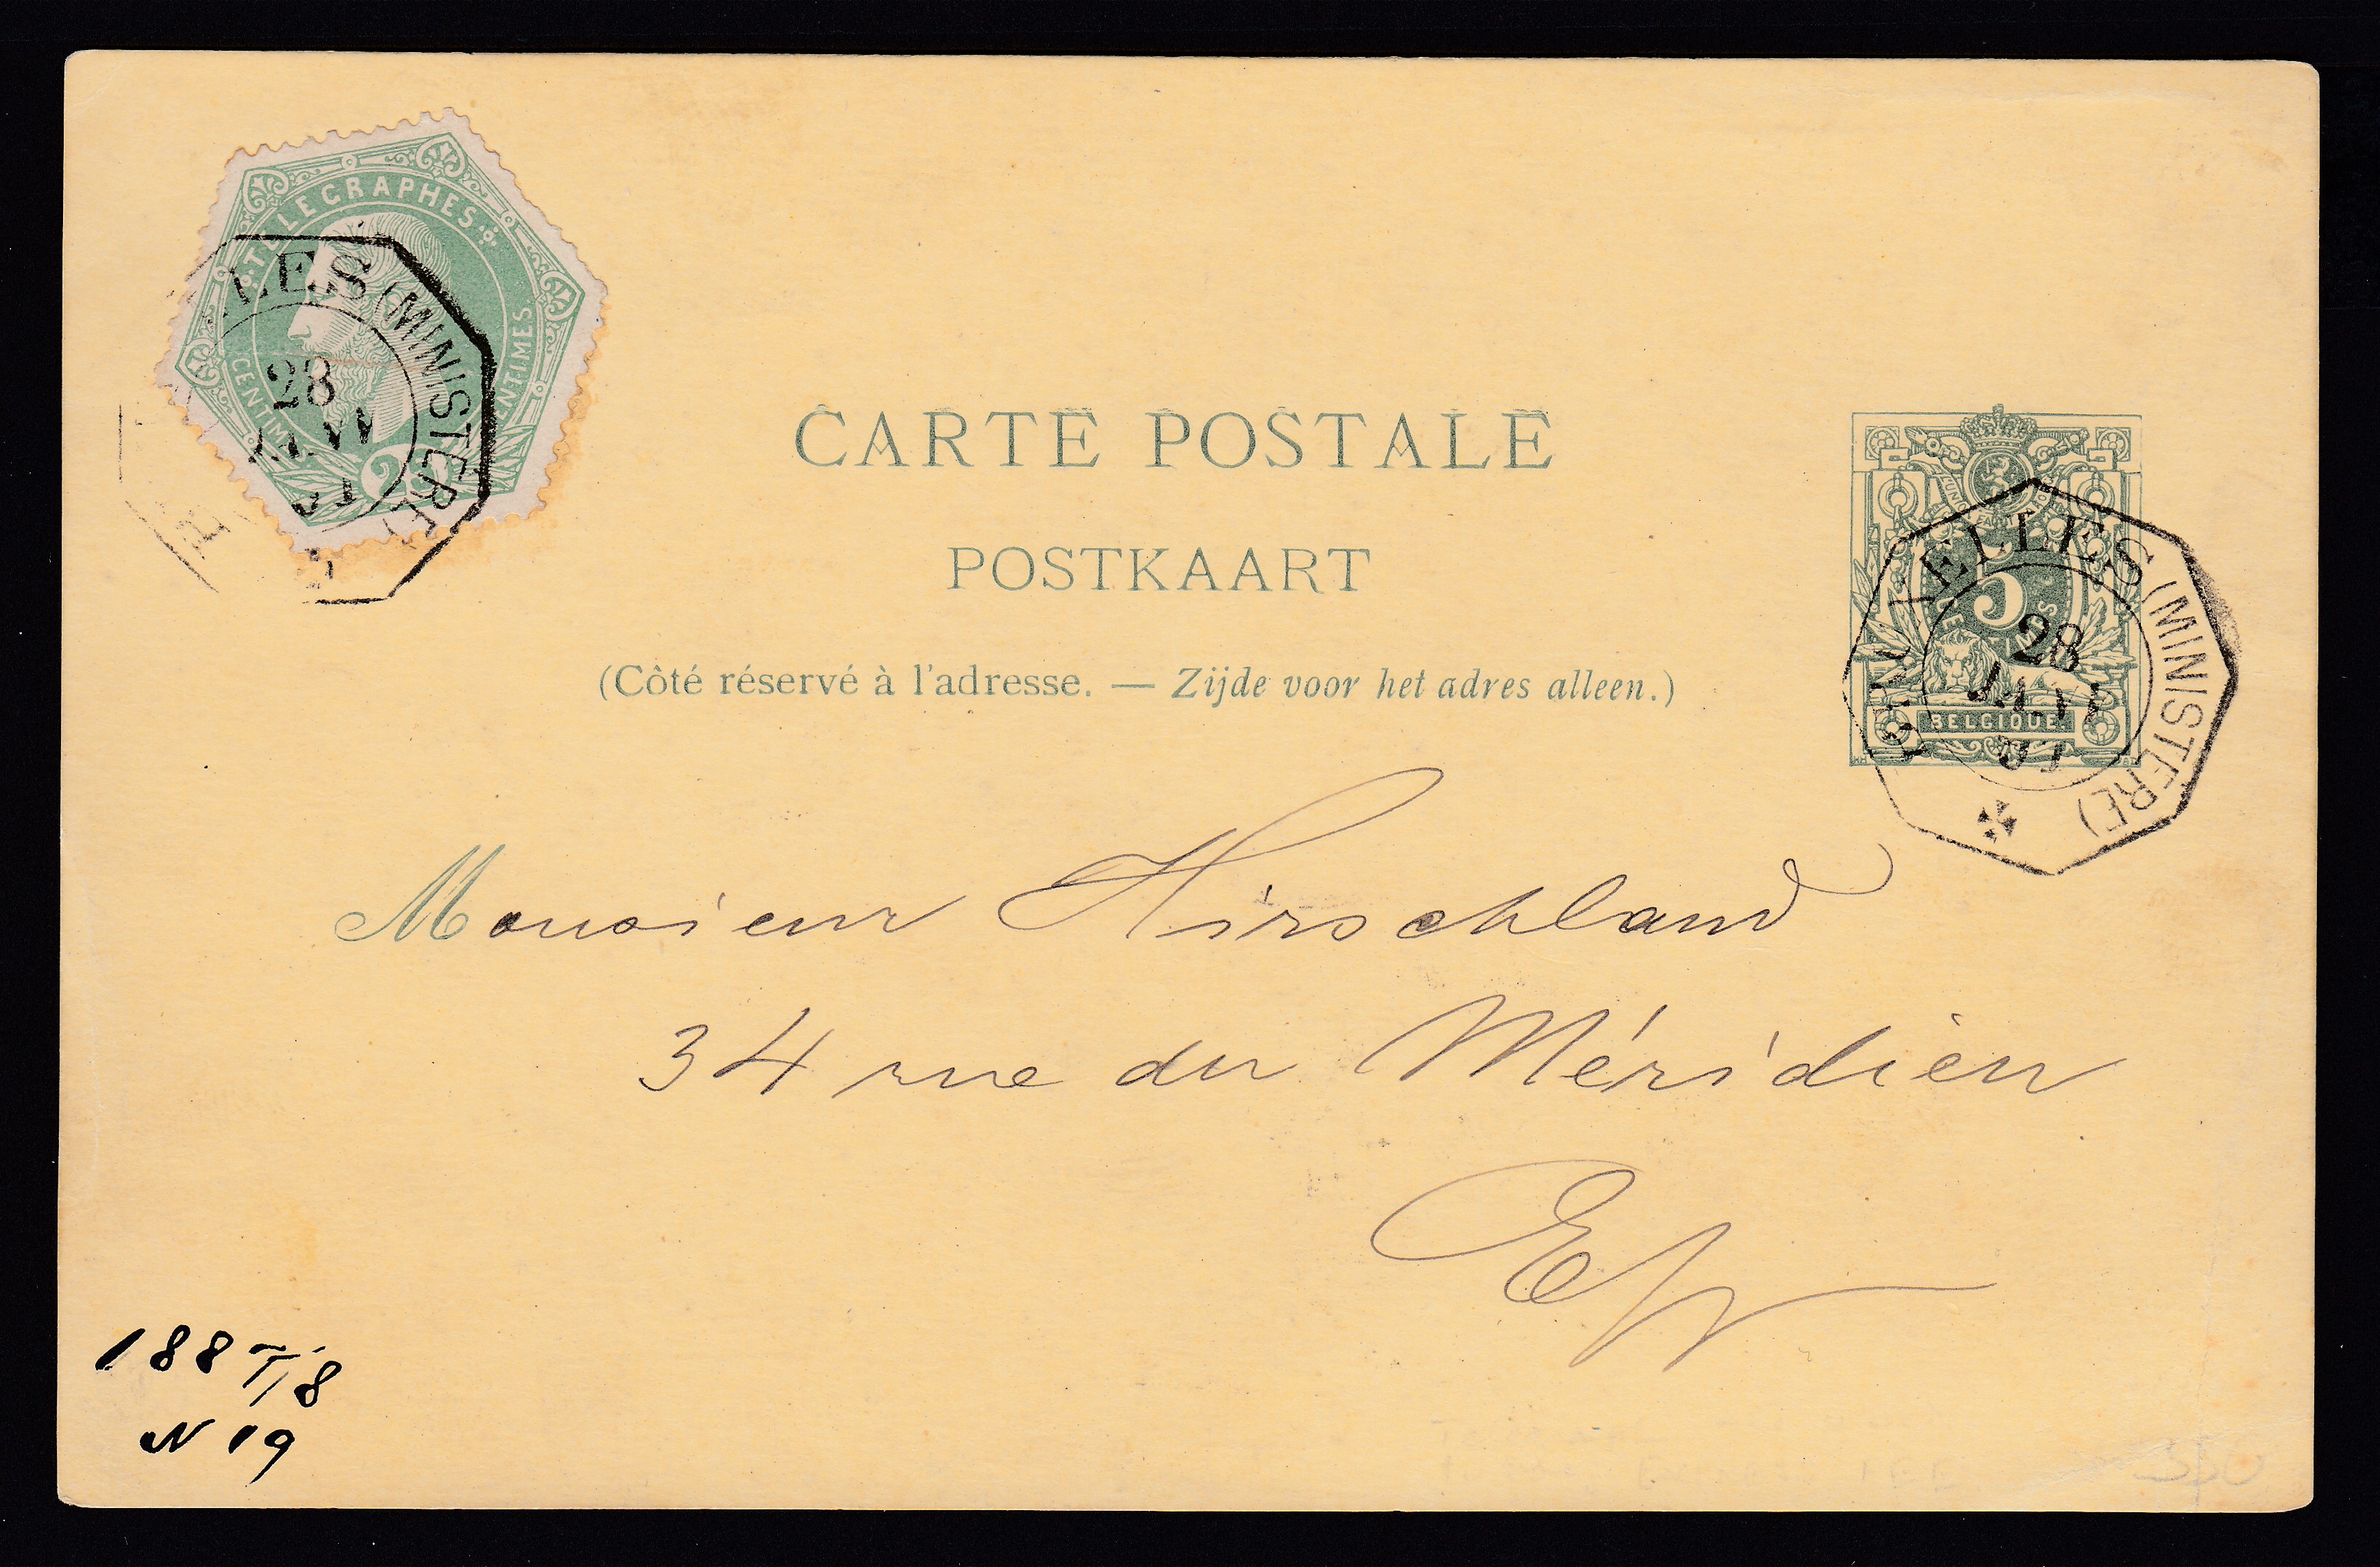 TELEGRAPHES
CENTIMES
25
LLES (MINISTERE)
28
CARTE POSTALE
POSTKAART
(Côté réservé à l'adresse. — Zijde voor het adres alleen.)
5
BELGIQUE
BRUXELLES (MINISTERE)
28
JANV
91
Monsieur Hirschland
34 rue du Méridien
EV
188 T/8
N 19